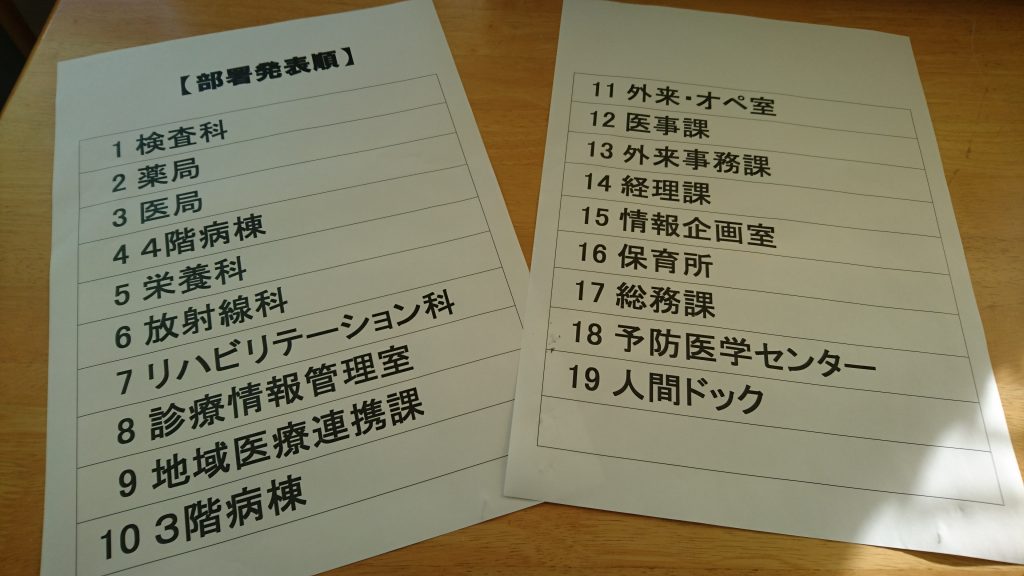 【部署発表順】
1 検査科
2 薬局
3 医局
4 4階病棟
5 栄養科
6 放射線科
7 リハビリテーション科
8 診療情報管理室
9 地域医療連携課
10 3階病棟
11 外来・オペ室
12 医事課
13 外来事務課
14 経理課
15 情報企画室
16 保育所
17 総務課
18 予防医学センター
19 人間ドック